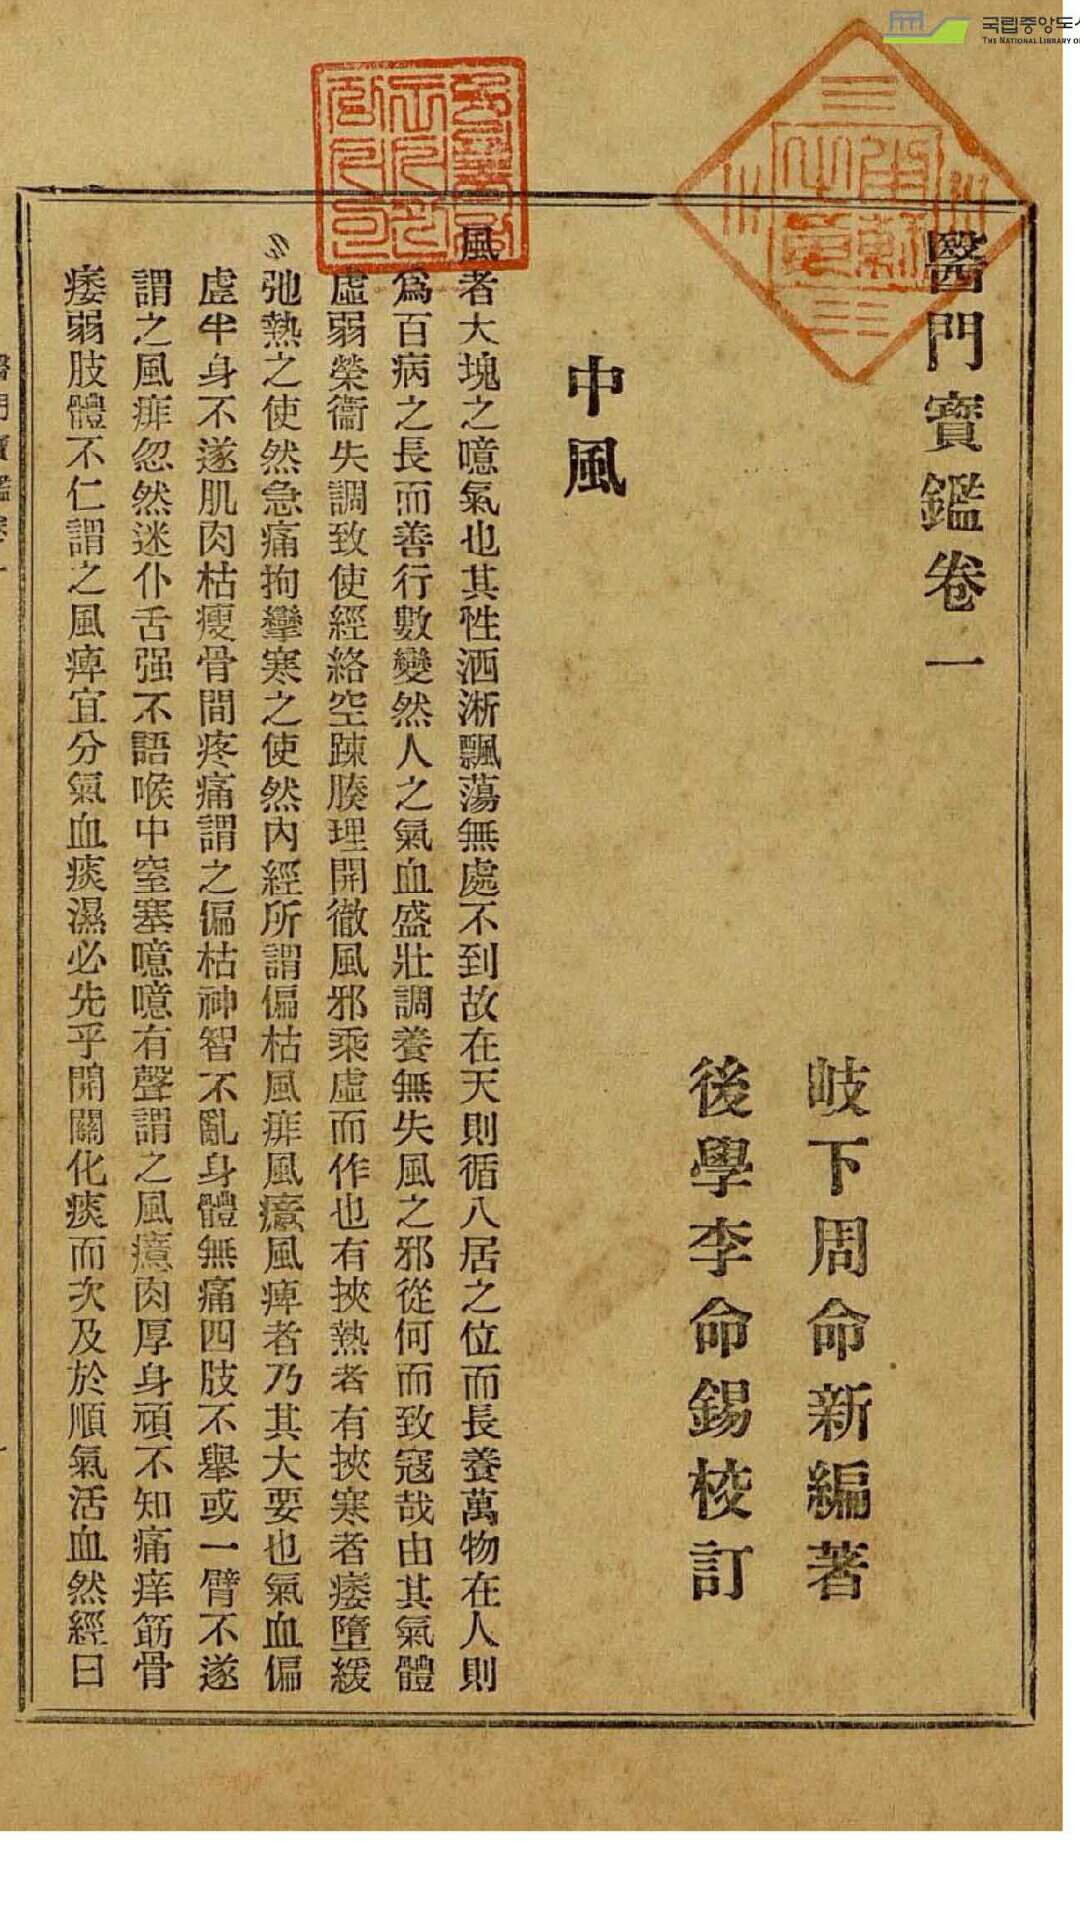 醫門寶鑑卷一
岐下周命新編著
後學李命錫校訂
中風
風者大塊之噫氣也其性洒淅飄蕩無處不到故在天則循八居之位而長養萬物在人則
爲百病之長而善行數變然人之氣血盛壯調養無失風之邪從何而致寇哉由其氣體
虛弱榮衞失調致使經絡空踈腠理開徹風邪乘虛而作也有挾熱者有挾寒者痿墮緩
弛熱之使然急痛拘攣寒之使然內經所謂偏枯風痱風癔風痺者乃其大要也氣血偏
虛半身不遂肌肉枯瘦骨間疼痛謂之偏枯神智不亂身體無痛四肢不擧或一臂不遂
謂之風痱忽然迷仆舌强不語喉中窒塞噫噫有聲謂之風癔肉厚身頑不知痛痒筋骨
痿弱肢體不仁謂之風痺宜分氣血痰濕必先乎開關化痰而次及於順氣活血然經曰
국립중앙도
THE NATIONAL LIBRARY